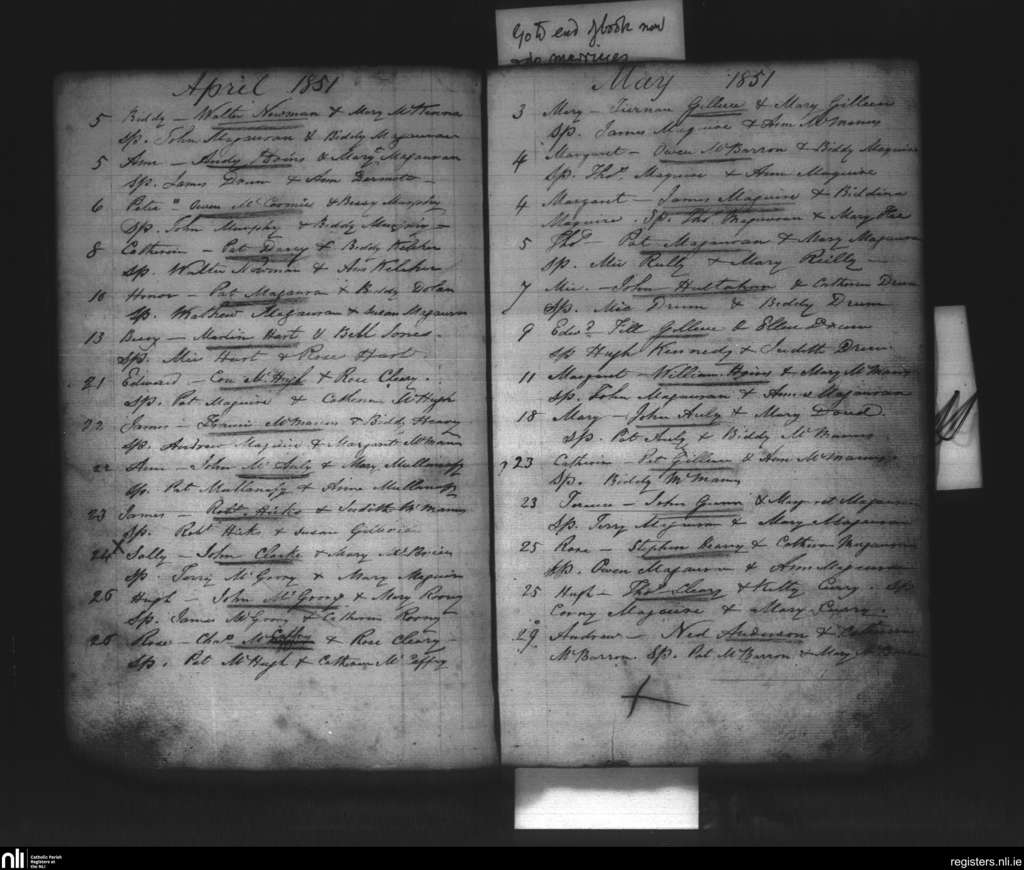 Go to end of book now
marriages
April 1851
5 Biddy - Walter Newman & Mary McKenna
Sp. John Magauran & Biddy Magauran
5 Ann - Andy & Mary Magauran
Sp. James Drum & Ann Dermott -
6 Peter " Owen McCormic & Bessy Murphy
Sp. John Murphy & Biddy
8 Catherine - Pat Darcy & Biddy Keleher
Sp. Walter Newman & Ann Keleher
10 Honor - Pat Magauran & Biddy Dolan
Sp. Mathew Magauran & Susan Magauran
13 Bessy - Martin Hart & Bell Jones.
Sp. Mic Hart & Rose Hart
21 Edward - Con McHugh & Rose Cleary.
Sp. Pat Maguire & Catherine McHugh
22 James - McManus & Biddy
Sp. Andrew Maguire & Margaret McManus
22 Ann - John McAuly & Mary Mullanafy
Sp. Pat Mullanafy & Anne Mullanafy
23 James - Robt. Hicks & Judith McManus
Sp. Robt Hicks & Susan
24 X Sally - John Clarke & Mary
Sp. Terry McGoory & Mary Maguire
26 Hugh - John McGoory & Mary Roony
Sp. James McGoory & Catherine Roony
26 Rose - Chas. McCaffry & Rose Cleary -
Sp. Pat McHugh & Catherine McCaffry
May 1851
3 Mary - Tiernan Gilleece & Mary Gilleece
Sp. James Maguire & Ann McManus
4 Margaret - Owen McBarron & Biddy Maguire
Sp. Thos. Maguire & Ann Maguire
4 Margaret - James Maguire & Biddina
Maguire. Sp. Thos Magauran & Mary
5 Thos - Pat Magauran & Mary Magauran
Sp. Mic Reilly & Mary Reilly -
7 Mic. - John & Catherine Drum
Sp. Mic Drum & Biddy Drum
9 Edwd. Fill Gilleece & Ellen Drum
Sp Hugh Kennedy & Judith Drum.
11 Margaret - William & Mary McManus
Sp. John Magauran & Anne Magauran
18 Mary - John Auly & Mary
Sp. Pat Auly & Biddy McManus
23 Catherine - Pat Gilleece & Ann McManus
Sp. Biddy McManus
23 Terence - John Gunn & Margaret Magauran
Sp. Terry Magauran & Mary Magauran
25 Rose - Stephen & Catherine Magauran
Sp. Owen Magauran & Ann Magauran
25 Hugh - Thos Cleary & Kitty Curry. Sp
Corny Maguire & Mary Curry.
29 Andrew - Ned Anderson & Catherine
McBarron. Sp. Pat McBarron & Mary
nli Catholic Parish
Registers at
the NLI
registers.nli.ie